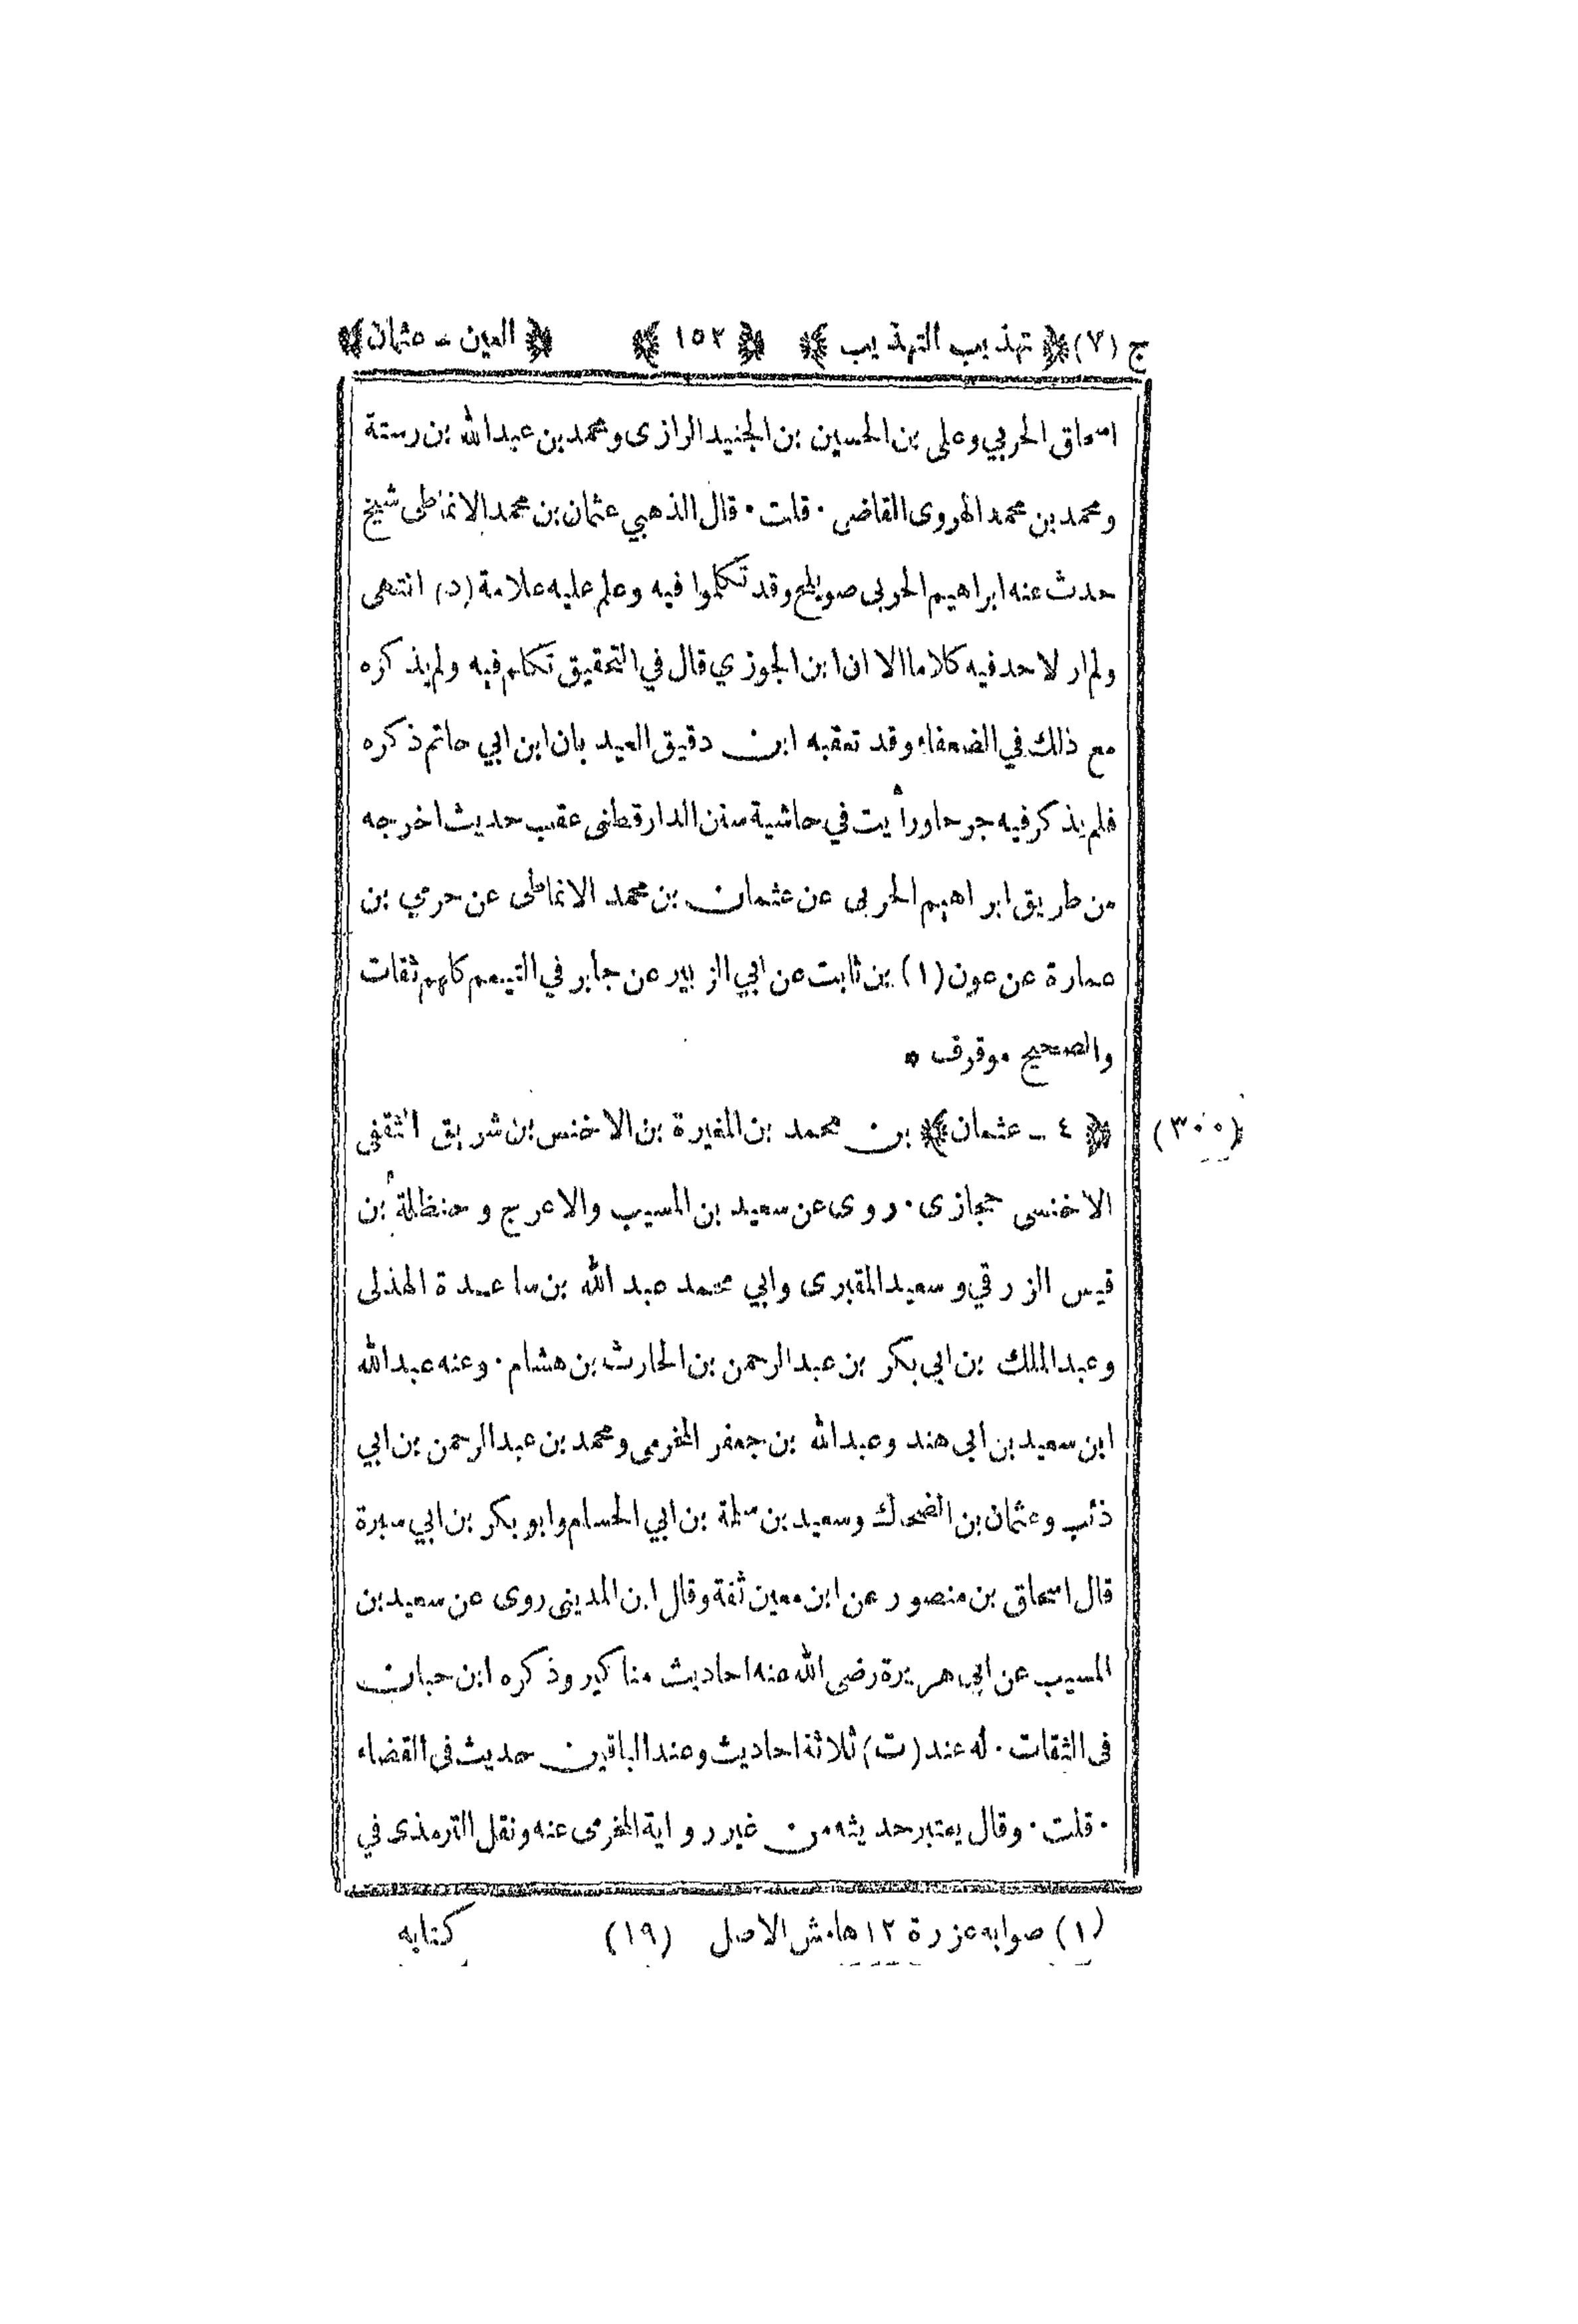 ج (٧) ﴿ تهذيب التهذيب ﴾ ﴿ ١٥٢ ﴾ ﴿ العين ـ عثمان ﴾
اسحاق الحربي وعلى بن الحسين بن الجنيد الرازى ومحمد بن عبدالله بن رستة
ومحمد بن محمد الهروى القاضى ٠ قلت ٠ قال الذهبي عثمان بن محمد الانماطى شيخ
حدث عنه ابراهيم الحربى صويلح وقد تكلموا فيه وعلم عليه علامة (د) انتهى
ولم ار لاحد فيه كلاما الا ان ابن الجوزي قال في التحقيق تكلم فيه ولم يذكره
مع ذلك في الضعفاء وقد تعقبه ابن دقيق العيد بان ابن ابي حاتم ذكره
فلم يذكر فيه جرحا ورأيت في حاشية سنن الدارقطنى عقب حديث اخرجه
من طريق ابراهيم الحربى عن عثمان بن محمد الانماطى عن حرمي بن
عمارة عن عون (١) بن ثابت عن ابي الزبير عن جابر في التيمم كلهم ثقات
والصحيح موقوف *
(٣٠٠) ﴿ ٤ ـ عثمان ﴾ بن محمد بن المغيرة بن الاخنس بن شريق الثقفى
الاخنسى حجازى ٠ روى عن سعيد بن المسيب والاعرج وحنظلة بن
قيس الزرقي وسعيد المقبرى وابي محمد عبد الله بن ساعدة الهذلى
وعبدالملك بن ابي بكر بن عبدالرحمن بن الحارث بن هشام ٠ وعنه عبدالله
ابن سعيد بن ابى هند وعبدالله بن جعفر المخرمى ومحمد بن عبدالرحمن بن ابي
ذئب وعثمان بن الضحاك وسعيد بن سلمة بن ابي الحسام وابو بكر بن ابي سبرة
قال اسحاق بن منصور عن ابن معين ثقة وقال ابن المدينى روى عن سعيد بن
المسيب عن ابي هريرة رضى الله عنه احاديث مناكير وذكره ابن حبان
فى الثقات ٠ له عند (ت) ثلاثة احاديث وعند الباقين حديث فى القضاء
٠ قلت ٠ وقال يعتبر حديثه من غير رواية المخرمى عنه ونقل الترمذى في
(١) صوابه عزرة ١٢ هامش الاصل (١٩) كتابه